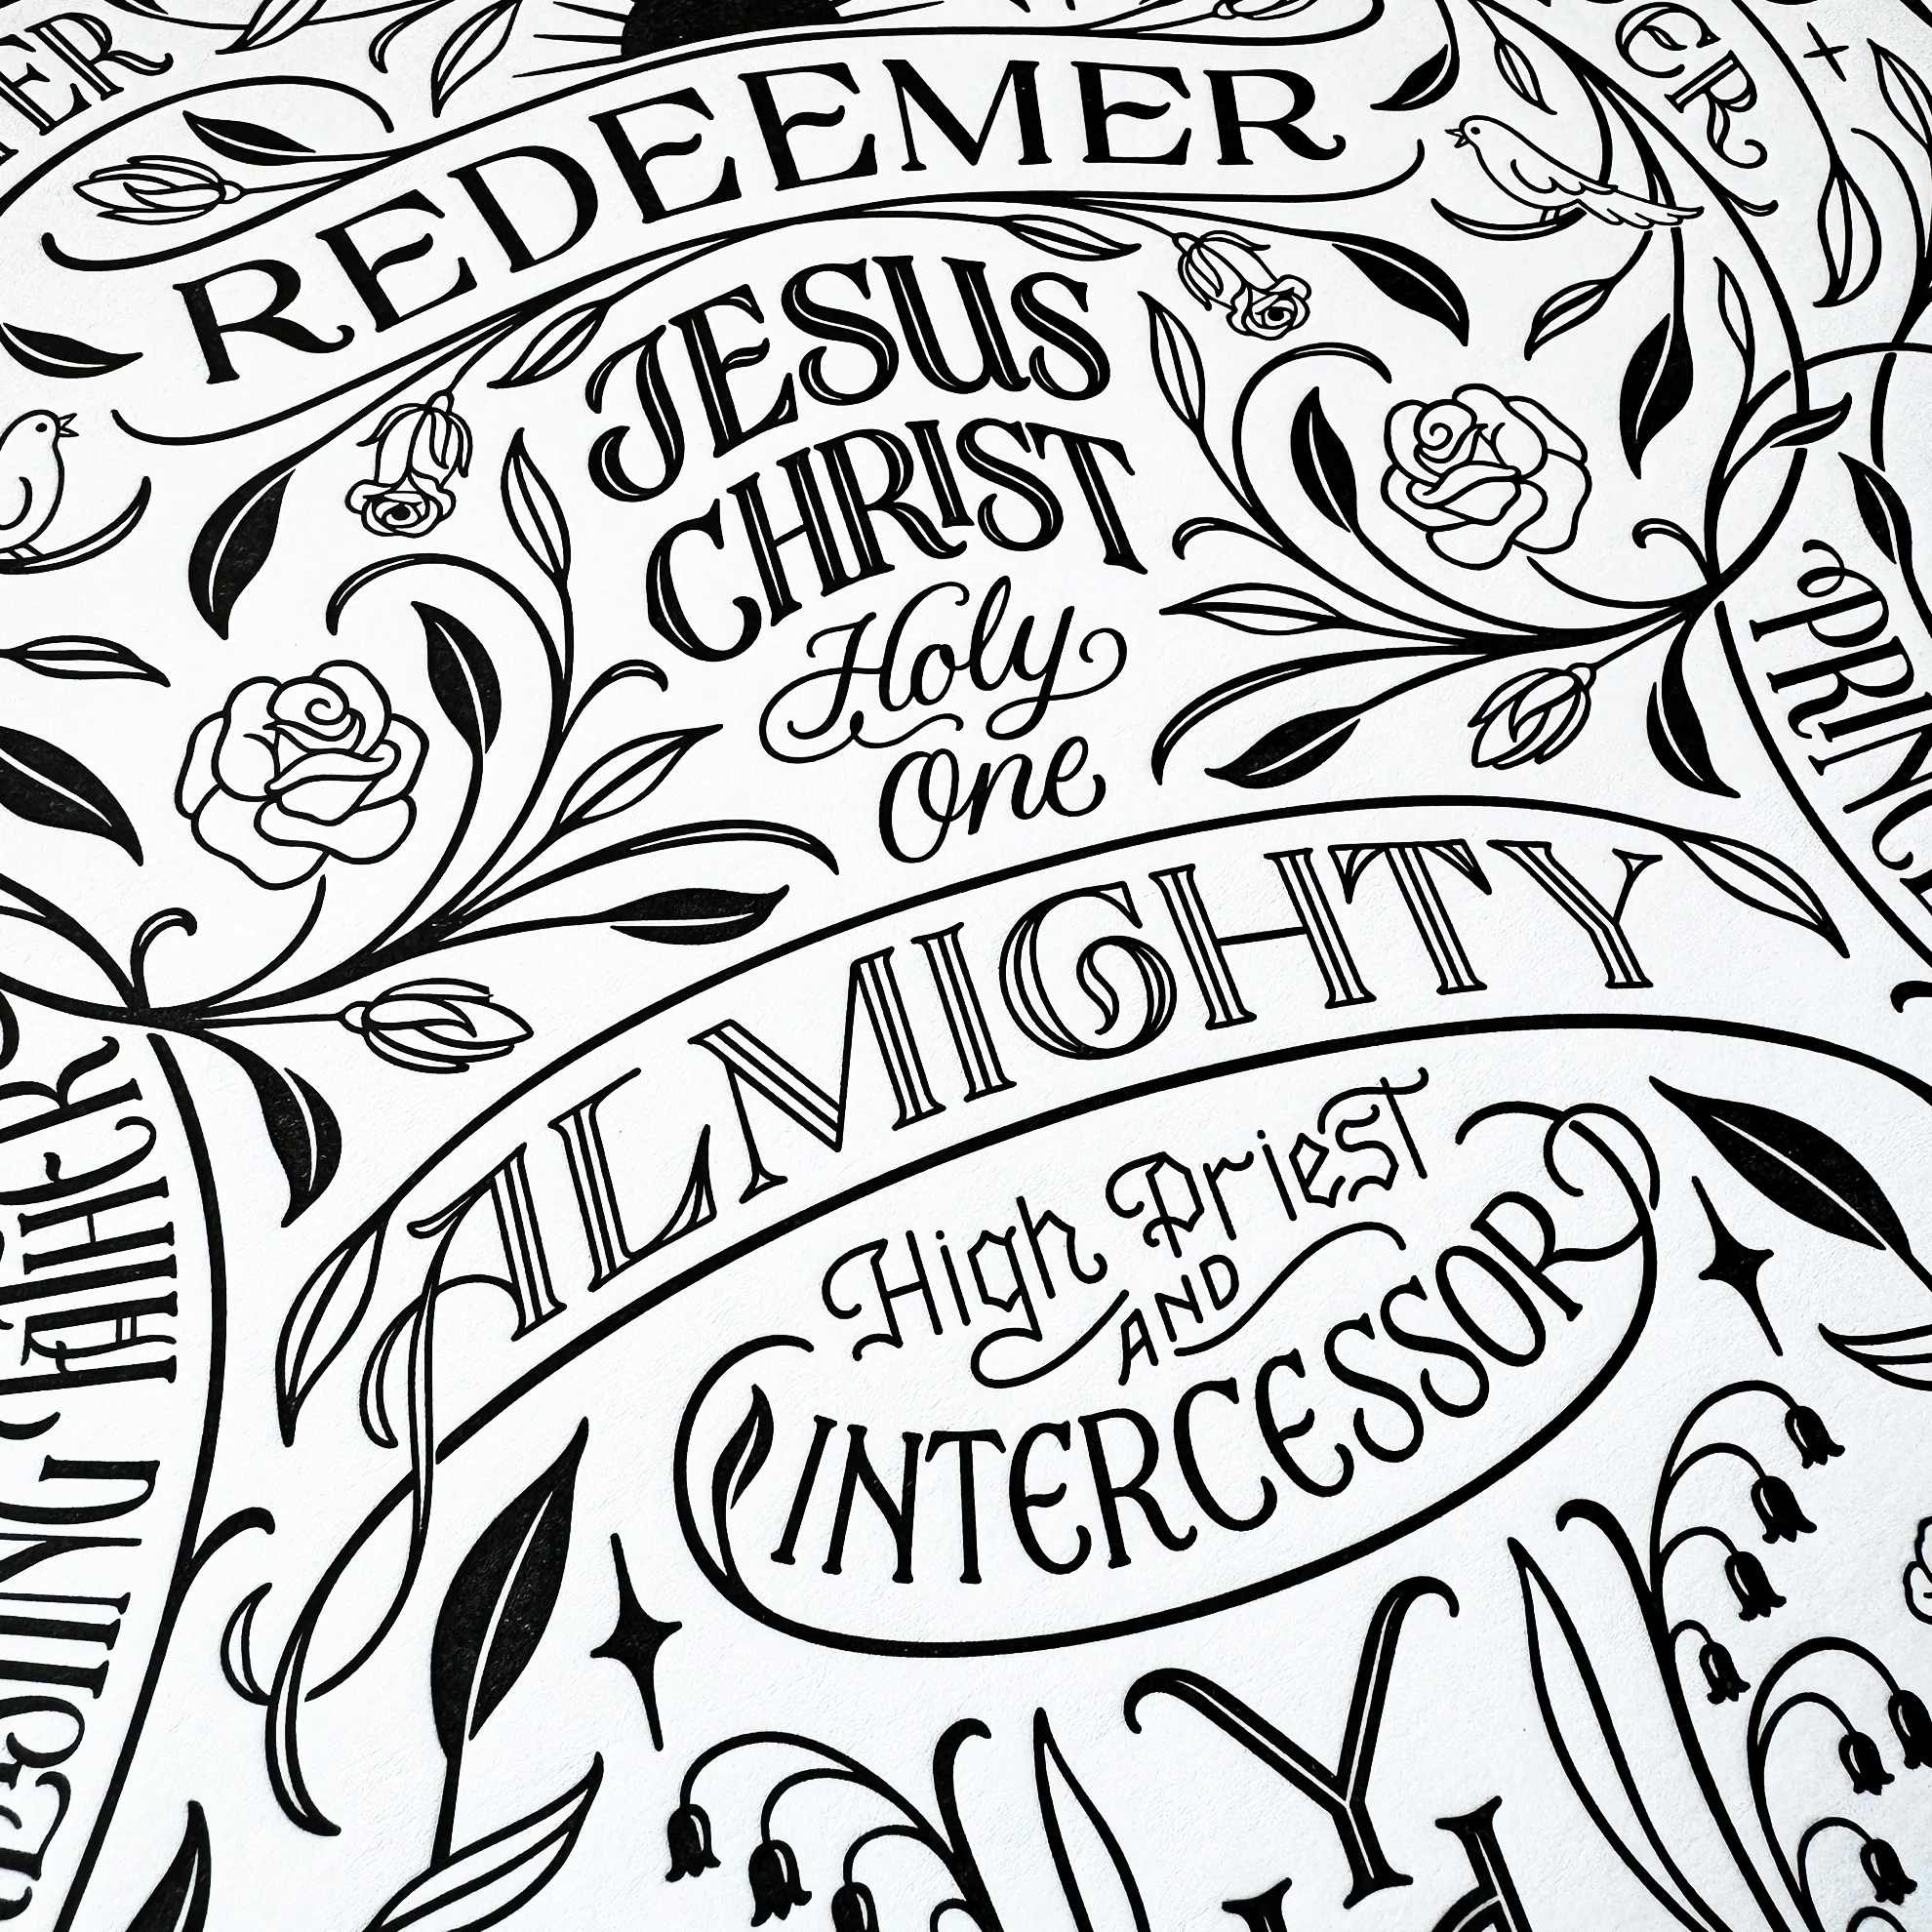 REDEEMER
JESUS
CHRIST
Holy
One
ALMIGHTY
High Priest
AND
INTERCESSOR
FATHER
Y